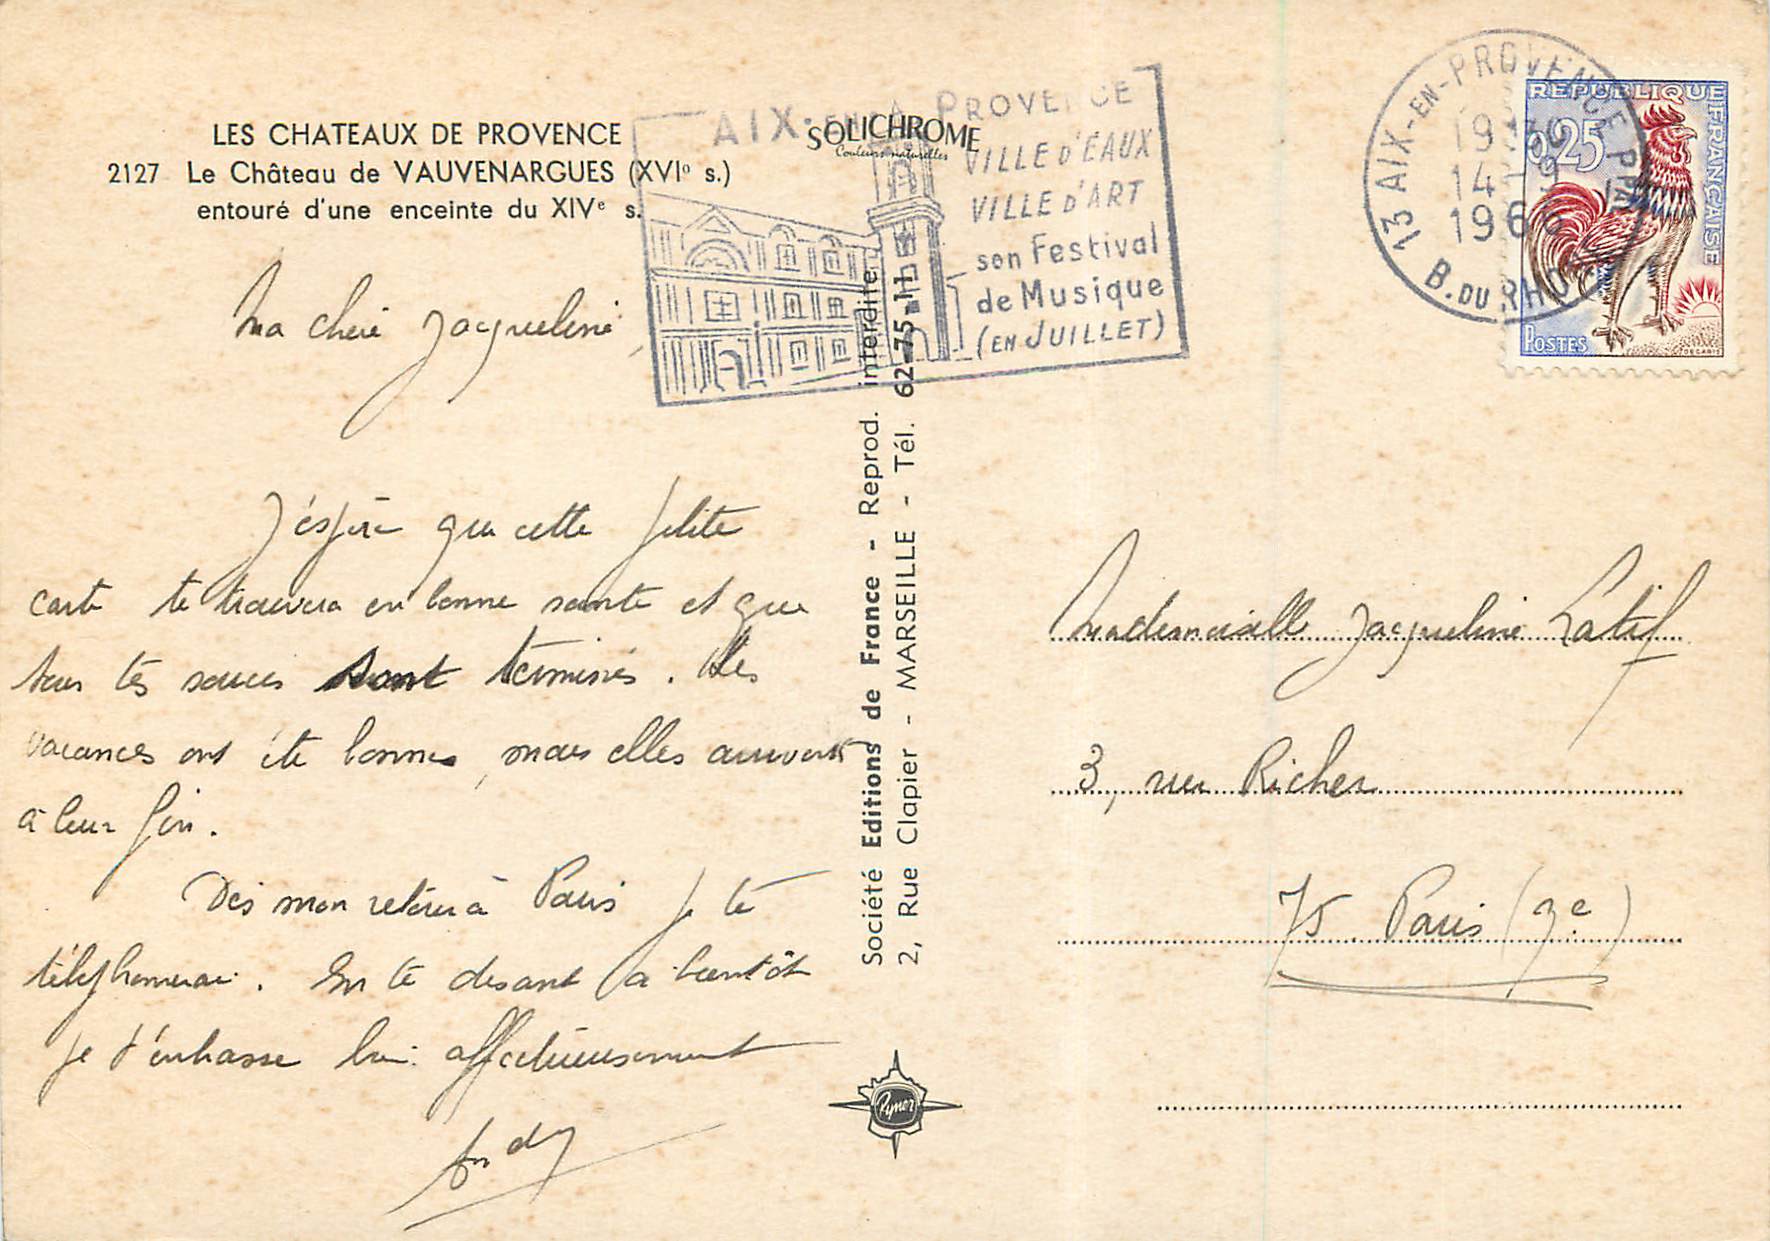 LES CHATEAUX DE PROVENCE
2127 Le Château de VAUVENARGUES (XVIᵒ s.)
entouré d'une enceinte du XIVᵉ s.
SOLICHROME
Couleurs naturelles
AIX-EN PROVENCE
VILLE D'EAUX
VILLE D'ART
son Festival
de Musique
(EN JUILLET)
13 AIX-EN-PROVENCE PPAL
14-9
1966
B. DU RHONE
REPUBLIQUE FRANÇAISE
0,25
POSTES
DECARIS
Ma chère Jacqueline,
J'éspère que cette petite
carte te trouvera en bonne sante et que
tous tes soucis sont términés. Les
vacances ont été bonnes, mais elles arrivent
à leur fin.
Dès mon retour à Paris je te
téléphonerai. En te disant à bientôt
je t'embrasse bien affectueusement
Andy
Société Editions de France - Reprod. interdite
2, Rue Clapier - MARSEILLE - Tél. 62-75-11
Rymer
Mademoiselle Jacqueline Latif
3, rue Richer
75 Paris (9e)